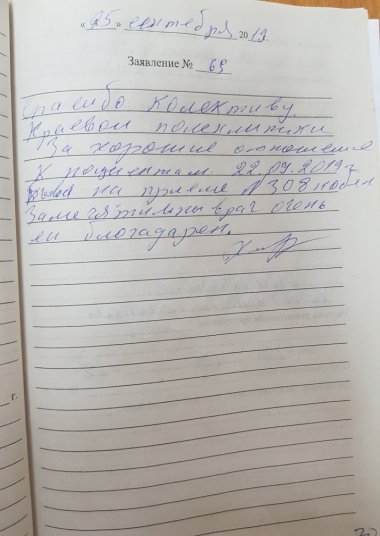 «25» сентября 2019.
Заявление № 69
спасибо колективу
Краевой полеклиники
За хорошие отношение
к пациентам. 22.09.2019 г
на приёме №308 кабин
Замечятильны врач очень
ей благодарен.
г.